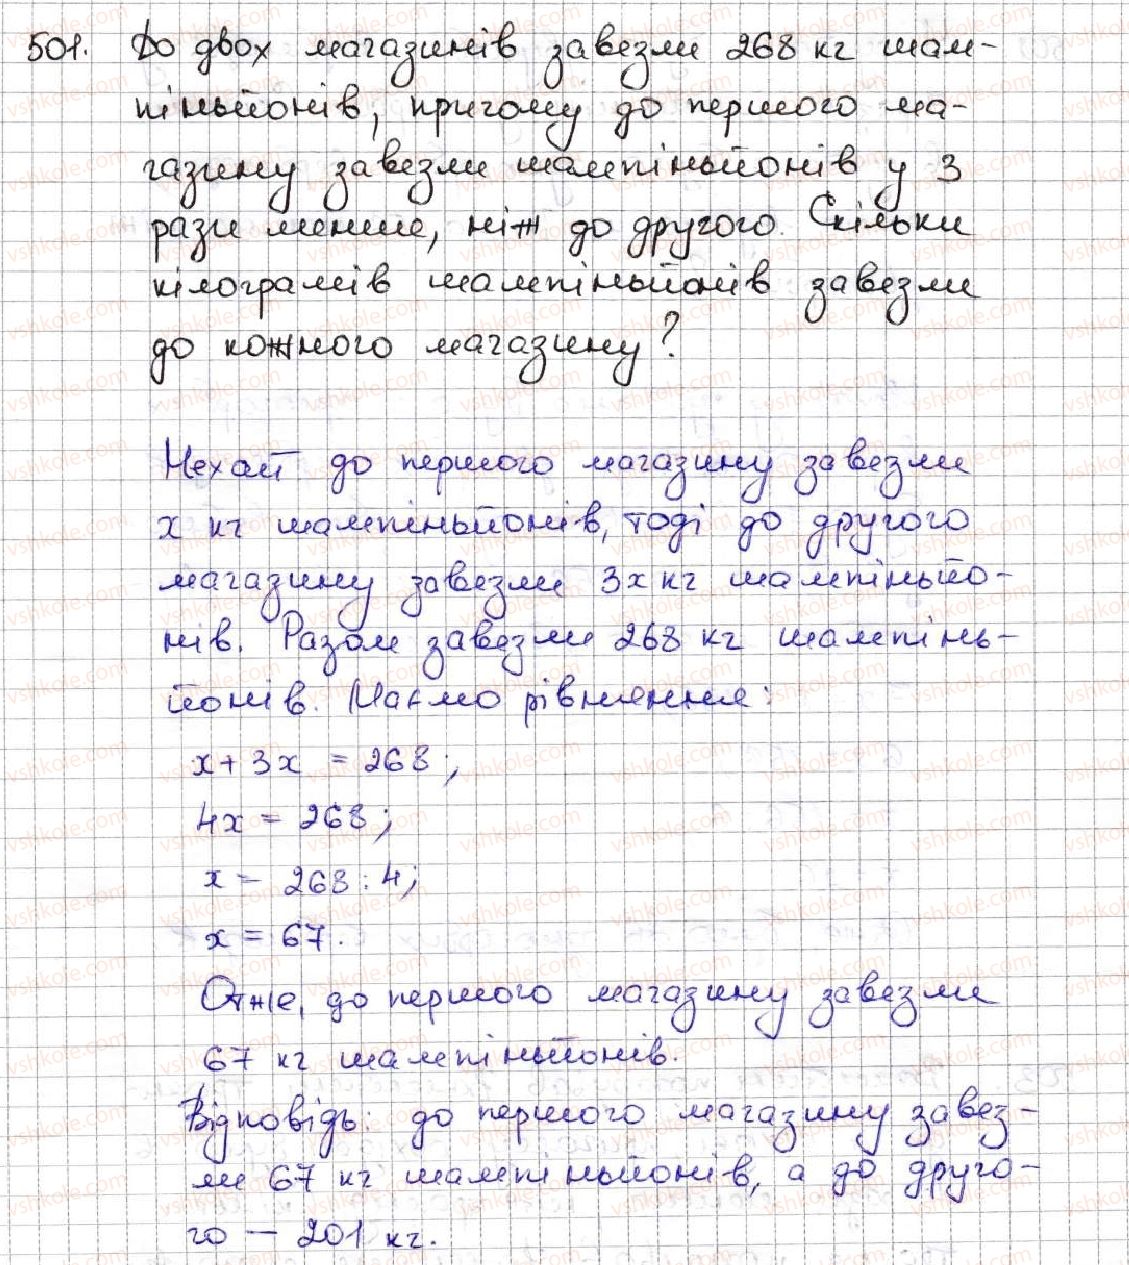 501. До двох магазинів завезли 268 кг шам-
піньйонів, причому до першого ма-
газину завезли шампіньйонів у 3
рази менше, ніж до другого. Скільки
кілограмів шампіньйонів завезли
до кожного магазину?
Нехай до першого магазину завезли
x кг шампіньйонів, тоді до другого
магазину завезли 3x кг шампіньйо-
нів. Разом завезли 268 кг шампінь-
йонів. Маємо рівняння:
x + 3x = 268;
4x = 268;
x = 268 : 4;
x = 67.
Отже, до першого магазину завезли
67 кг шампіньйонів.
Відповідь: до першого магазину завез-
ли 67 кг шампіньйонів, а до друго-
го — 201 кг.